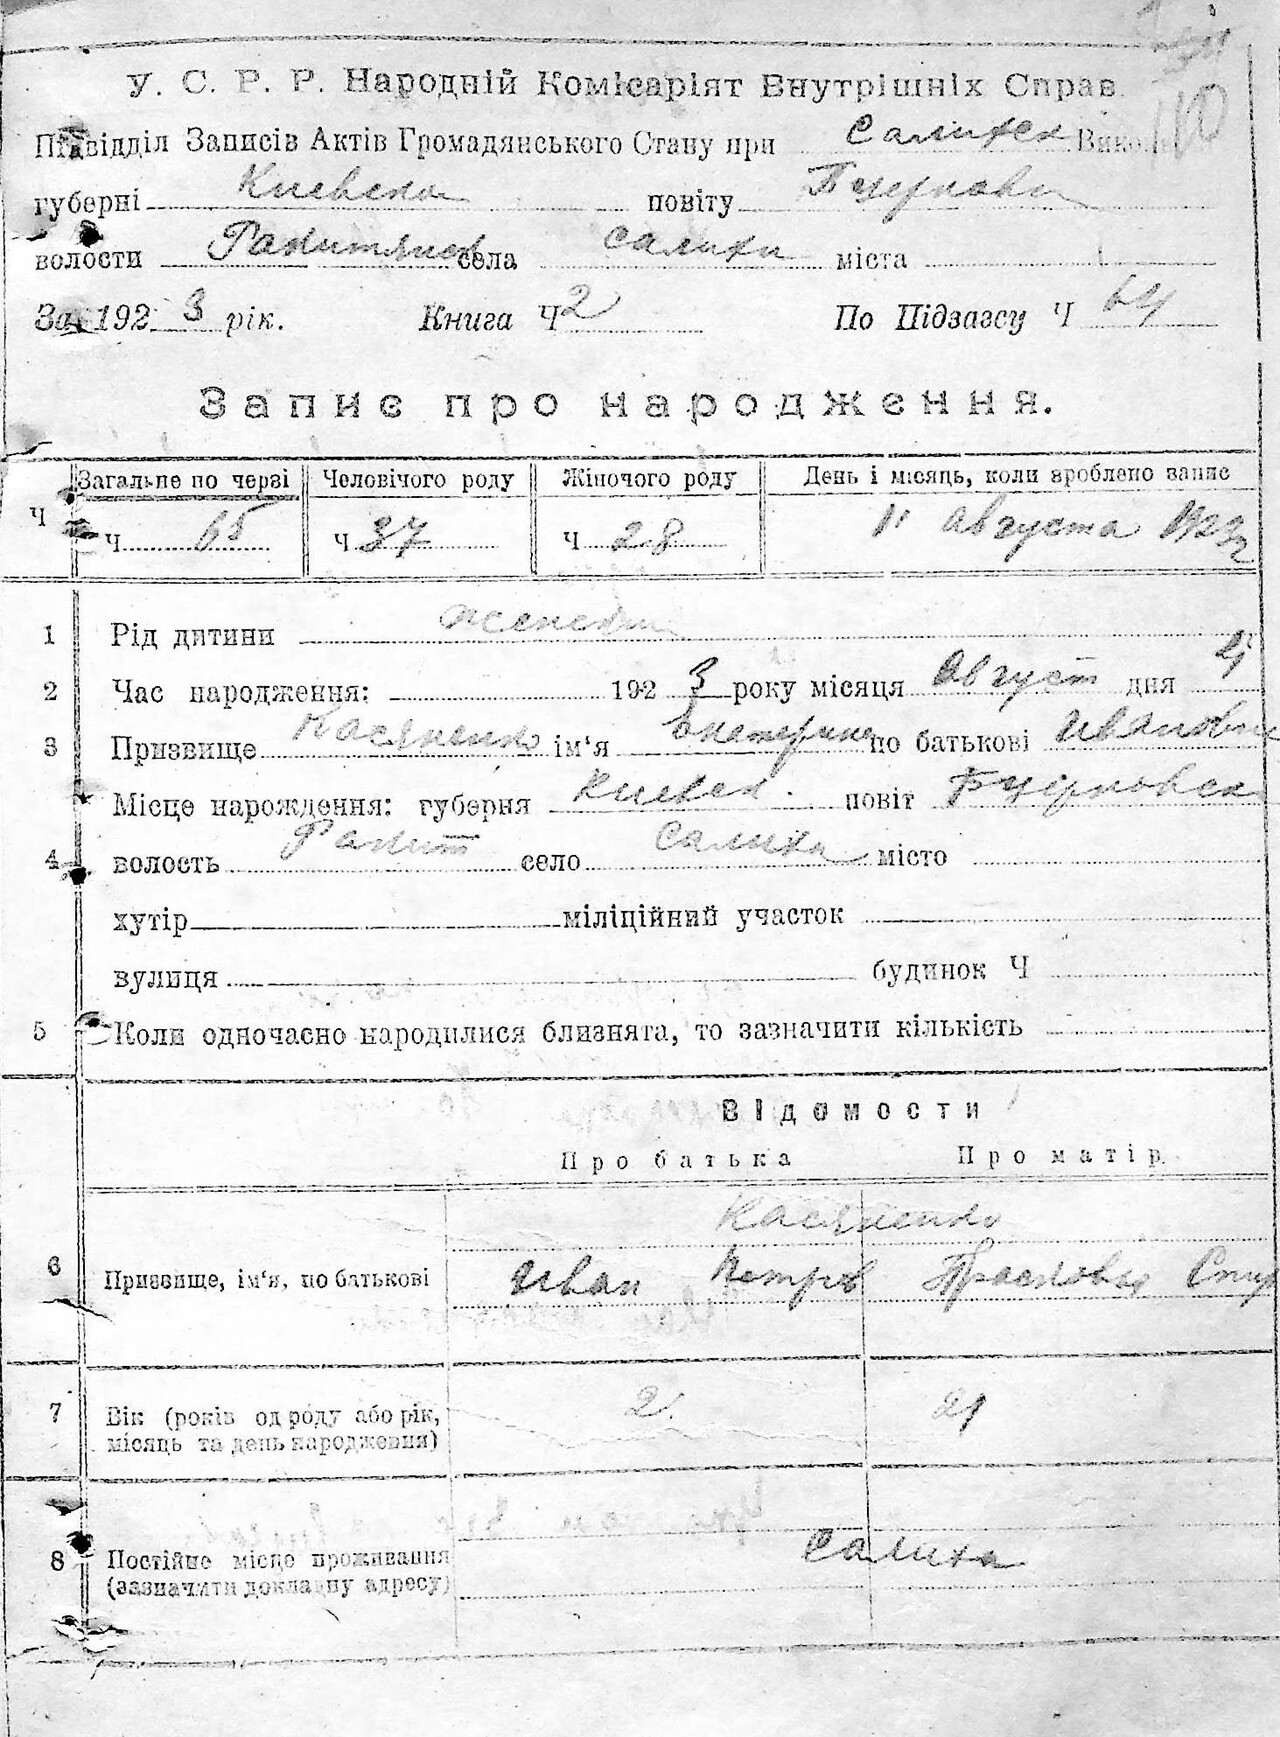 У. С. Р. Р. Народній Комісаріят Внутрішніх Справ.
110
Підвідділ Записів Актів Громадянського Стану при Салихск Викон
губерні Киевска повіту Бцерковск
волости Ракитянск села Салихи міста
За 1923 рік. Книга Ч 2 По Підзагсу Ч 64
Запис про народження.
Загальне по черзі Человічого роду Жіночого роду День і місяць, коли зроблено запис
Ч Ч 65 Ч 37 Ч 28 11 августа 1923 г
1 Рід дитини женский
2 Час народження: 1923 року місяця Август дня 4
3 Призвище Касяненко ім'я Екатерина по батькові Ивановна
Місце нарождення: губерня Киевск. повіт Бцерковск
4 волость Ракит село Салиха місто
хутір міліційний участок
вулиця будинок Ч
5 Коли одночасно народилися близнята, то зазначити кількість
Відомости
Про батька Про матір
Касяненко
6 Призвище, ім'я, по батькові Иван Петров Прасковья Спир
7 Вік (років од роду або рік, 2. 21
місяць та день народження)
8 Постійне місце проживання Салиха
(зазначити докладну адресу)